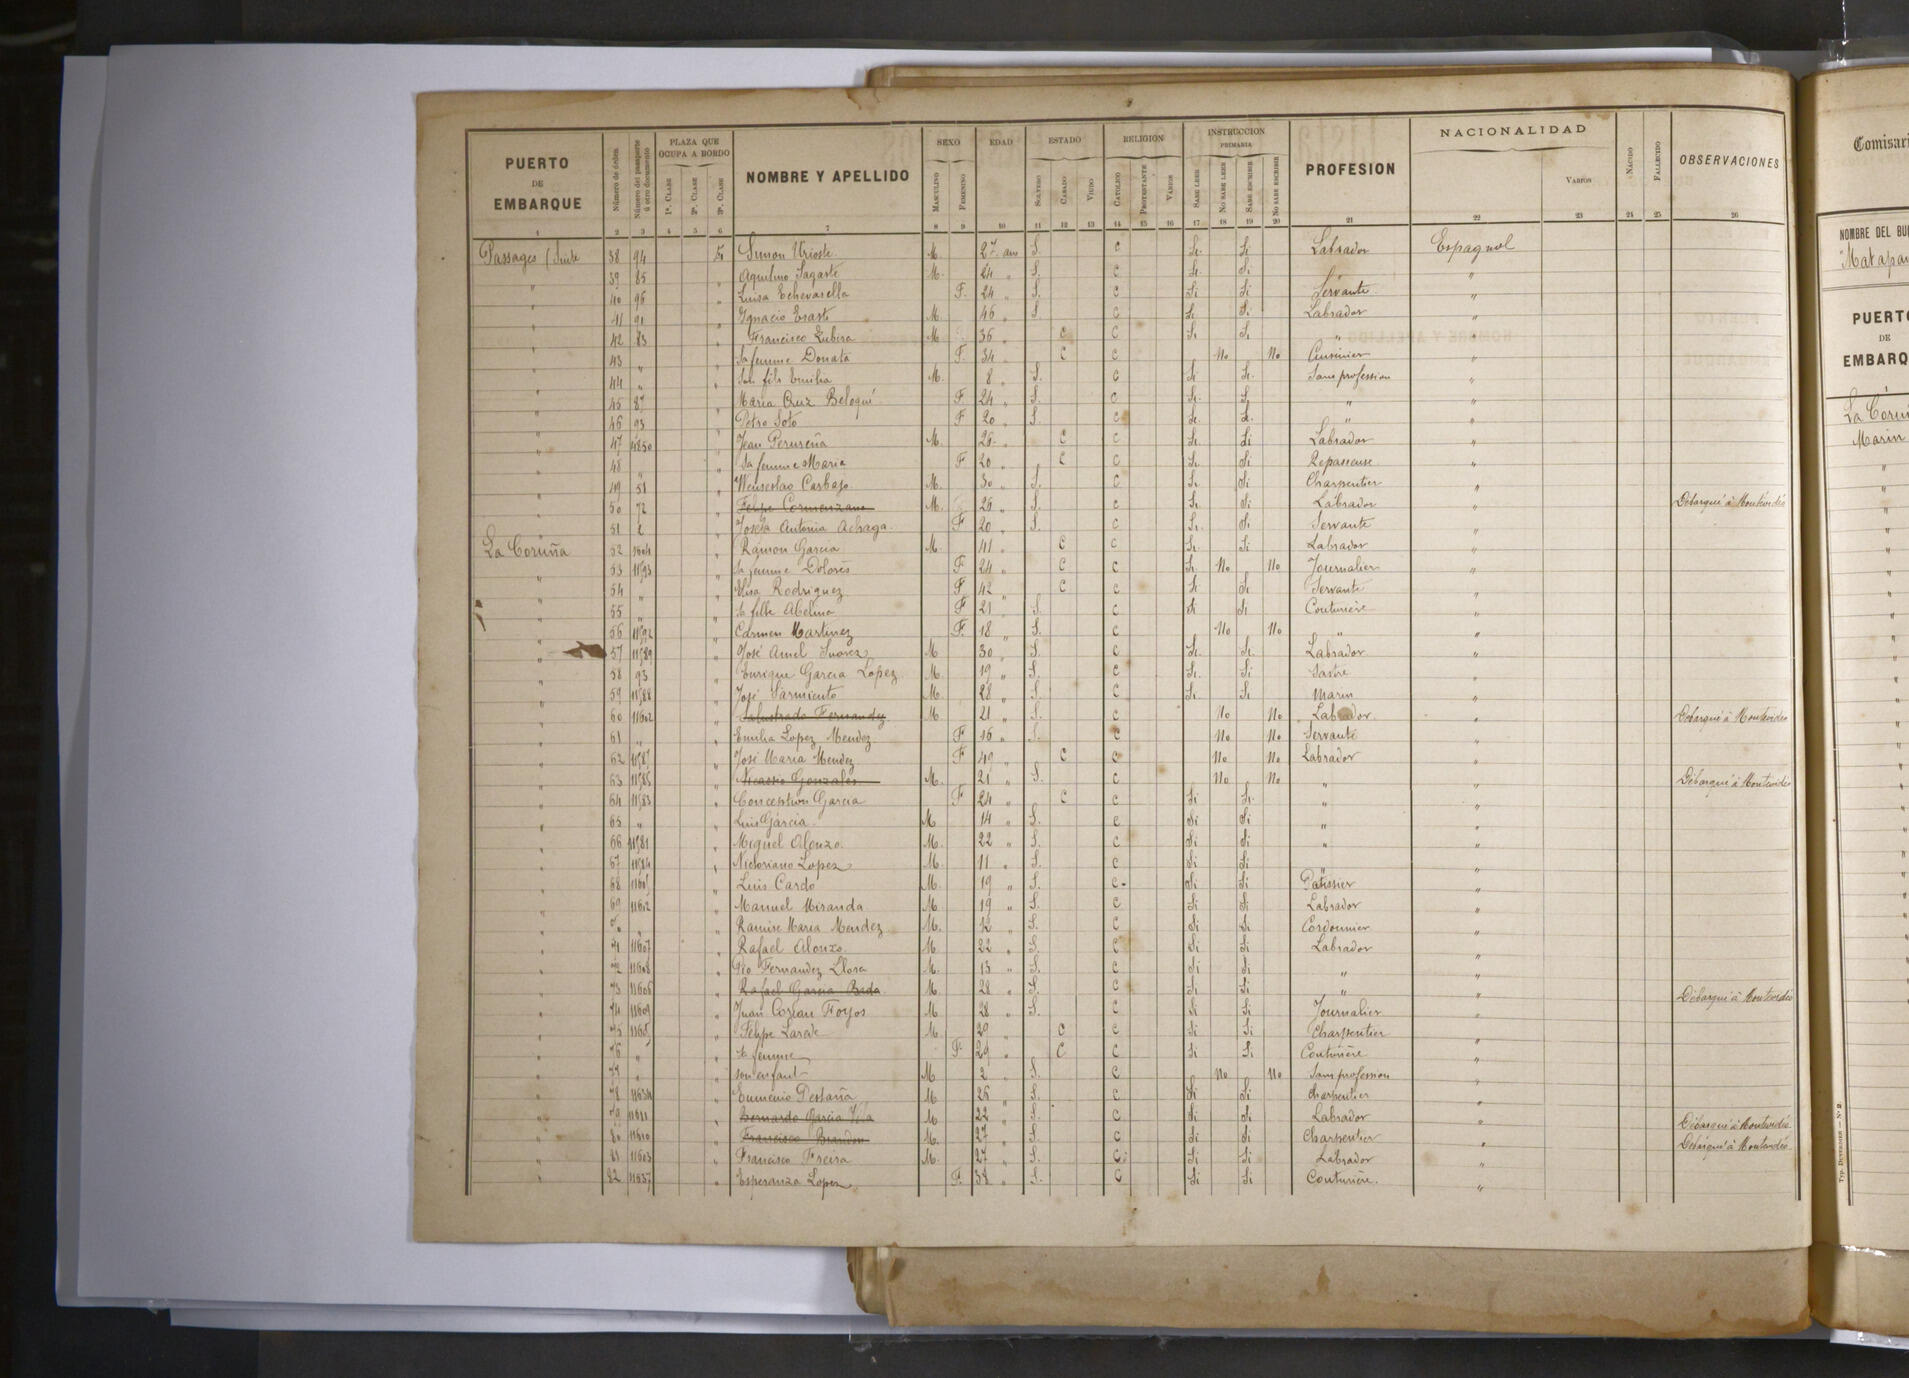 PUERTO DE EMBARQUE | Número de orden | Número del pasaporte ú otro documento | PLAZA QUE OCUPA A BORDO | NOMBRE Y APELLIDO | SEXO | EDAD | ESTADO | RELIGION | INSTRUCCION PRIMARIA | PROFESION | NACIONALIDAD | NACIDO | FALLECIDO | OBSERVACIONES
1ª. CLASE | 2ª. CLASE | 3ª. CLASE | MASCULINO | FEMENINO | SOLTERO | CASADO | VIUDO | CATÓLICO | PROTESTANTE | VARIOS | SABE LEER | NO SABE LEER | SABE ESCRIBIR | NO SABE ESCRIBIR | VARIOS
1 2 3 4 5 6 7 8 9 10 11 12 13 14 15 16 17 18 19 20 21 22 23 24 25 26
Passages (Suite 38 94 Simon Urioste M. 27 ans S. C Si Si Labrador Espagnol
" 39 85 " Aquilino Sagasti M. 24 " S. C Si Si " "
" 40 96 " Luisa F. 24 " S. C Si Si Servante "
" 41 91 " Ignacio M. 46 " S. C Si Si Labrador "
" 42 83 " Francisco Zubira M 36 " C C Si Si " "
" 43 " " Sa femme Donata F. 34 " C C No No Cuisinier "
" 44 " " Son fils Emilia M. 8 " S. C Si Si Sans profession "
" 45 87 " Maria Cruz Beloqui F. 24 " S. C Si Si " "
" 46 93 " Petro Soto F 20 " S. C Si Si " "
" 47 " Jean M. 26 " C C Si Si Labrador "
" 48 " " Sa femme Maria F 20 " C C Si Si Repasseuse "
" 49 51 " Wenseslao Carbajo M. 30 " S. C Si Si Charpentier "
" 50 72 " Felipe M. 26 " S. C Si Si Labrador " Débarqué à Montévidéo
" 51 " Josefa Antonia Achaga F 20 " S. C Si Si Servante "
La Coruña 52 " Ramon Garcia M. 41 " C C Si Si Labrador "
" 53 11593 " Sa femme Dolores F 24 " C C Si No No Journalier "
" 54 " " Elisa Rodriguez F 42 " C C Si Si Servante "
" 55 " " Sa fille Abelina F 21 " S. C Si Si Couturière "
" 56 11592 " Carmen Martinez F. 18 " S. C No No " "
" 57 11589 " José Amel Suarez M 30 " S. C Si Si Labrador "
" 58 93 " Enrique Garcia Lopez M. 19 " S. C Si Si Sastre "
" 59 11588 " José Sarmiento M. 28 " S. C Si Si Marin "
" 60 11602 " Salustrado Fernandez M 21 " S. C No No Labrador " Débarqué à Montévidéo
" 61 " " Emilia Lopez Mendez F 16 " S. C No No Servante "
" 62 11587 " José Maria Mendez F 49 " C C No No Labrador "
" 63 11586 " Nicassio Gonzales M. 21 " S. C No No " " Débarqué à Montévidéo
" 64 11583 " Conception Garcia F 24 " C C Si Si " "
" 65 " " Luis Garcia M 14 " S. C Si Si " "
" 66 11581 " Miguel Alonzo M. 22 " S. C Si Si " "
" 67 11584 " Victoriano Lopez M. 11 " S. C Si Si "
" 68 11601 " Luis Cardo M. 19 " S. C Si Si Patissier "
" 69 11612 " Manuel Miranda M. 19 " S. C Si Si Labrador "
" 70 " " Ramire Maria Mendez M. 12 " S. C Si Si Cordonnier "
" 71 11607 " Rafael Alonzo M 22 " S. C Si Si Labrador "
" 72 11608 " Pio Fernandez Llosa M. 13 " S. C Si Si " "
" 73 11606 " Rafael Garcia M. 28 " S. C Si Si " " Débarqué à Montévidéo
" 74 11609 " Juan Foyos M 28 " S. C Si Si Journalier "
" 75 " Felype M. 29 " C C Si Si Charpentier "
" 76 " " Sa femme F. 29 " C C Si Si Couturière "
" 77 " " son enfant M 2 " S. C No No Sans profession "
" 78 11634 " Eumenio Pestaña M 26 " S. C Si Si Charpentier "
" 79 11611 " Bernardo Garcia M 22 " S. C Si Si Labrador " Débarqué à Montévidéo
" 80 11610 " Francisco Brandon M. 27 " S. C Si Si Charpentier " Débarqué à Montévidéo
" 81 11603 " Francisco Freira M. 27 " S. C Si Si Labrador "
" 82 11637 " Esperanza Lopez F. 38 " S. C Si Si Couturière "
Comisari
NOMBRE DEL BU
"Matapa
PUERTO
DE
EMBARQ
La Coru
Marin
Typ. — Nº 2